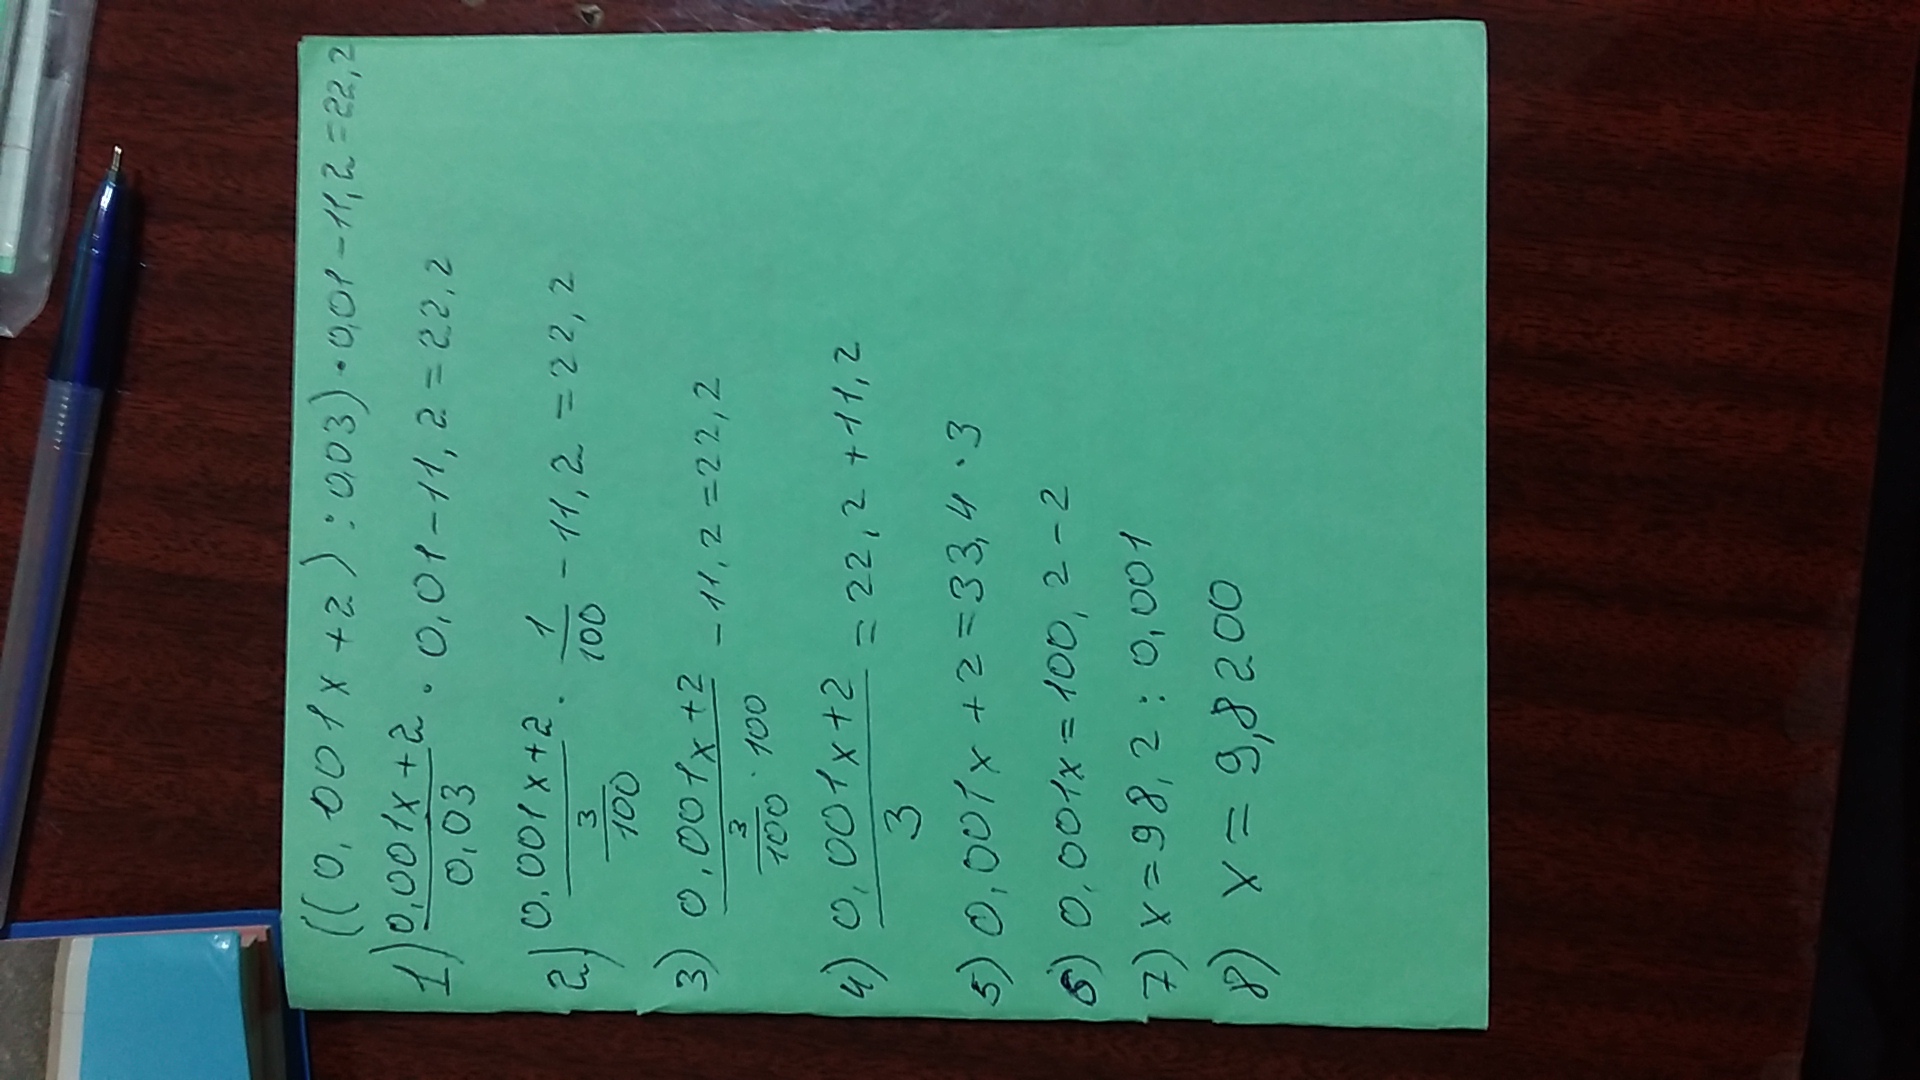 ((0,001x+2):0,03)·0,01-11,2=22,2
1) 0,001x+2/0,03 · 0,01-11,2=22,2
2) 0,001x+2/(3/100) · 1/100 - 11,2=22,2
3) 0,001x+2/(3/100 · 100) - 11,2=22,2
4) 0,001x+2/3 = 22,2+11,2
5) 0,001x+2=33,4·3
6) 0,001x=100,2-2
7) x=98,2:0,001
8) x=9,8200